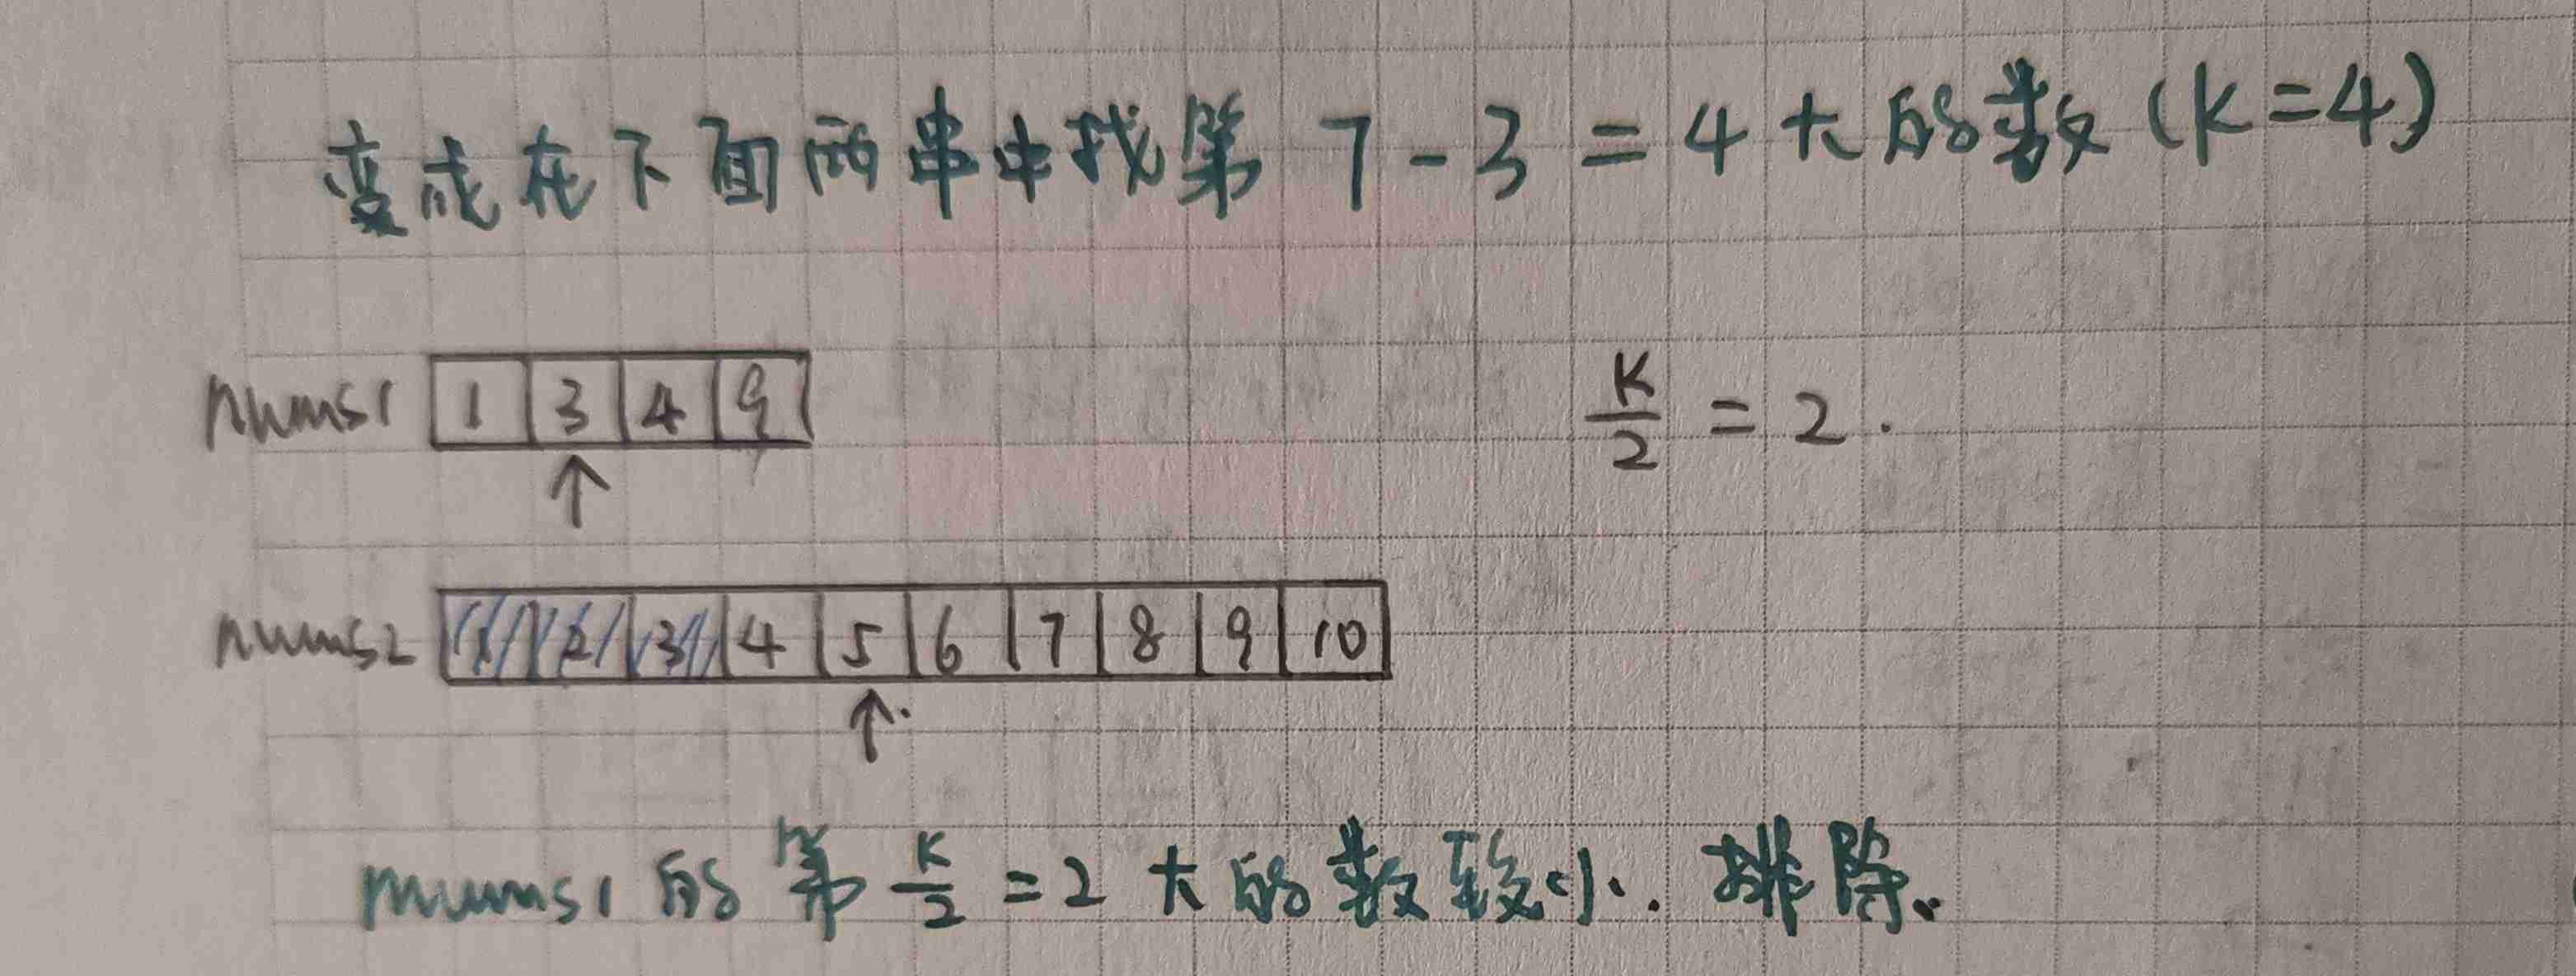 变成在下面两串中找第 7-3=4大的数(k=4)
nums1 1 3 4 9
K/2 = 2.
nums2 1 2 3 4 5 6 7 8 9 10
nums1 的第 K/2 =2 大的数较小. 排除.